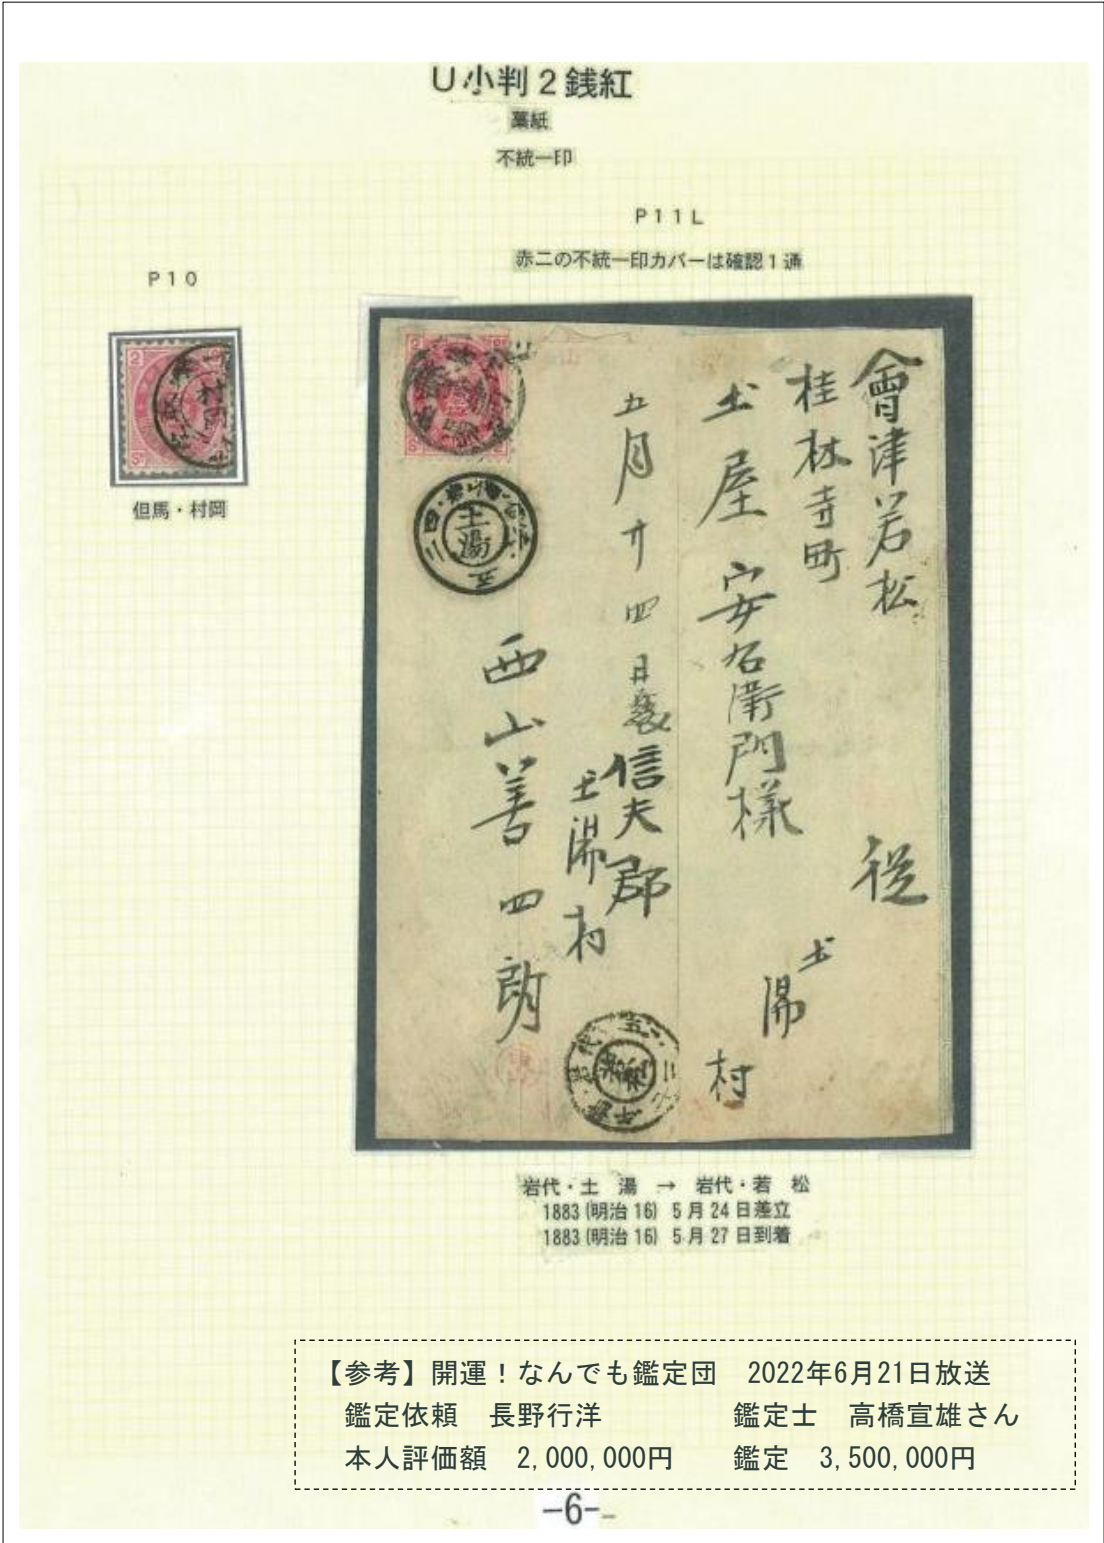 U小判2銭紅
藁紙
不統一印
P11L
赤二の不統一印カバーは確認1通
P10
村岡
但馬・村岡
會津若松
桂林寺町
土屋安右衛門様
従
土湯
村
五月廿四日
信夫郡
土湯村
西山善四郎
土湯
岩代・土 湯 → 岩代・若 松
1883(明治16) 5月24日差立
1883(明治16) 5月27日到着
【参考】開運!なんでも鑑定団 2022年6月21日放送
鑑定依頼 長野行洋 鑑定士 高橋宣雄さん
本人評価額 2,000,000円 鑑定 3,500,000円
-6-